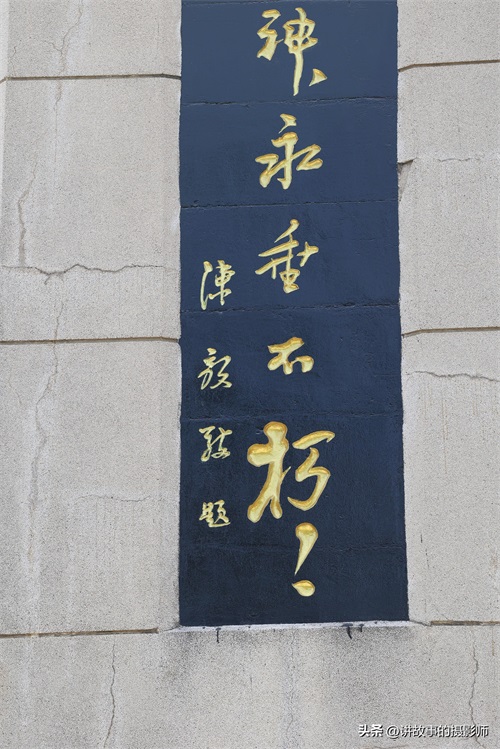 神永垂不朽!
陳毅敬題
头条 @讲故事的摄影师